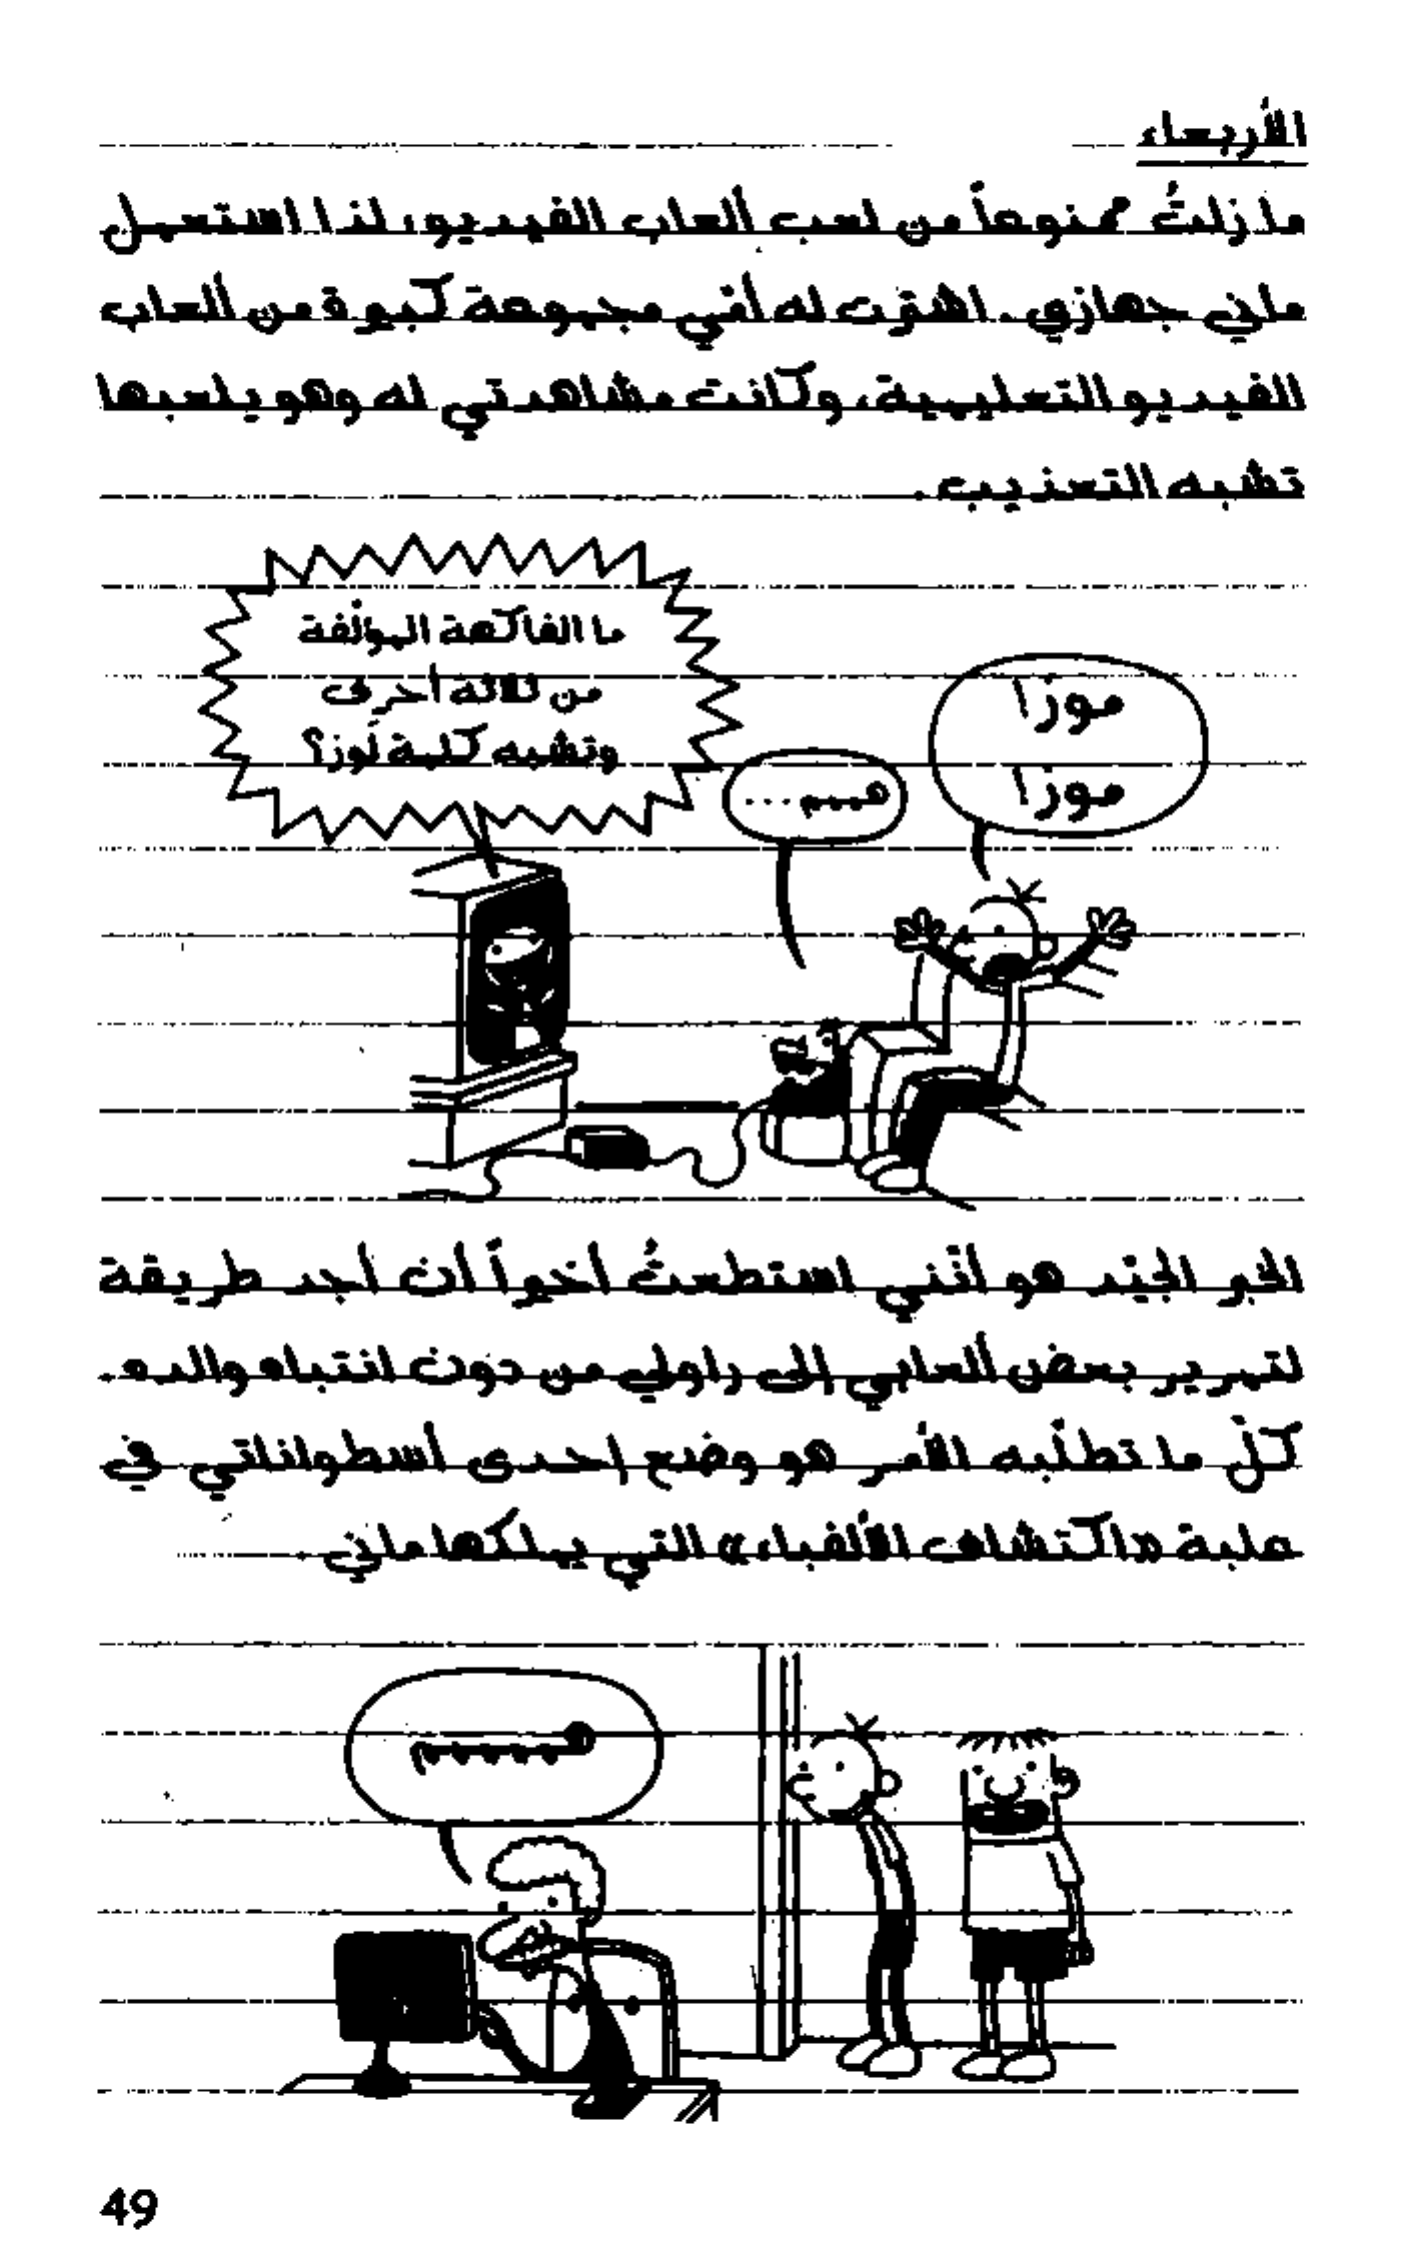 الأربعاء
ما زلتُ ممنوعاً من لعب ألعاب الفيديو، لذا استعمل
ماني جهازي. اشترت له أمّي مجموعة كبيرة من ألعاب
الفيديو التعليمية، وكانت مشاهدتي له وهو يلعبها
تشبه التعذيب.
ما الفاكهة المؤلّفة
من ثلاثة أحرف
وتشبه كلمة لَوز؟
موز!
موز!
همم...
الخبر الجيّد هو أنّني استطعتُ أخيراً أن أجد طريقة
لتمرير بعض ألعابي إلى راولي من دون انتباه والده.
كلّ ما تطلّبه الأمر هو وضع إحدى أسطواناتي في
علبة «اكتشاف الألفباء» التي يملكها ماني.
همممممم
49